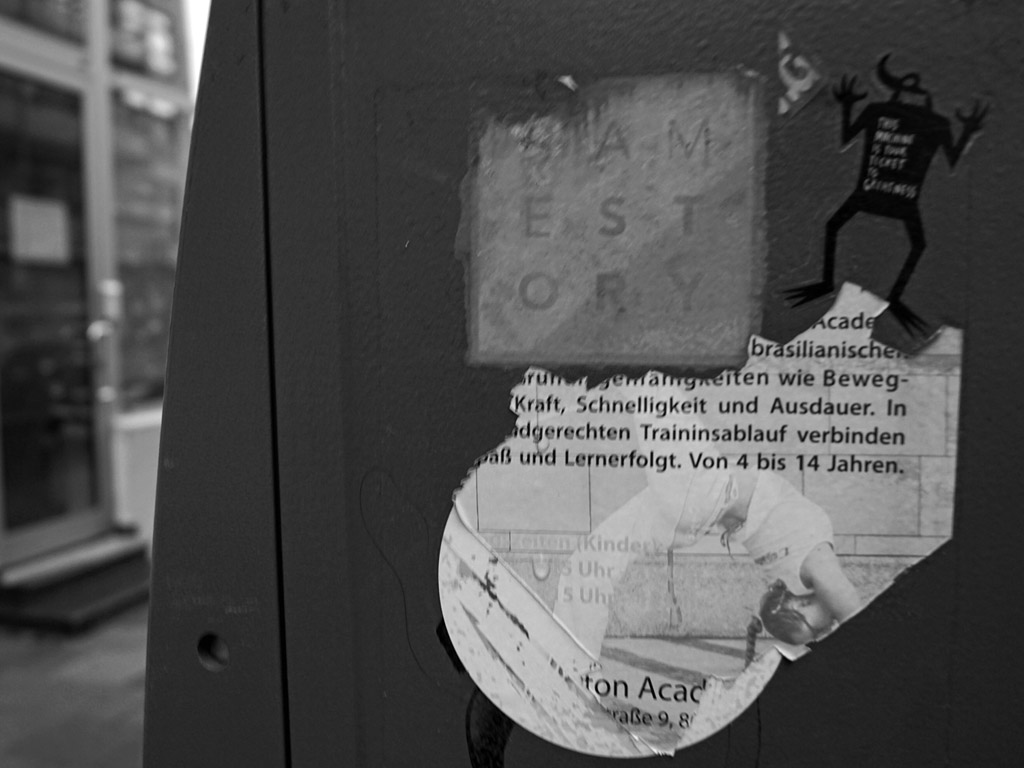 SAM
EST
ORY
THIS
MACHINE
IS YOUR
TICKET
TO
GREATNESS
Acade
brasilianischen
Grun genfähigkeiten wie Beweg-
Kraft, Schnelligkeit und Ausdauer. In
dgerechten Traininsablauf verbinden
paß und Lernerfolgt. Von 4 bis 14 Jahren.
eiten (Kinder)
5 Uhr
15 Uhr
ton Acad
raße 9, 8